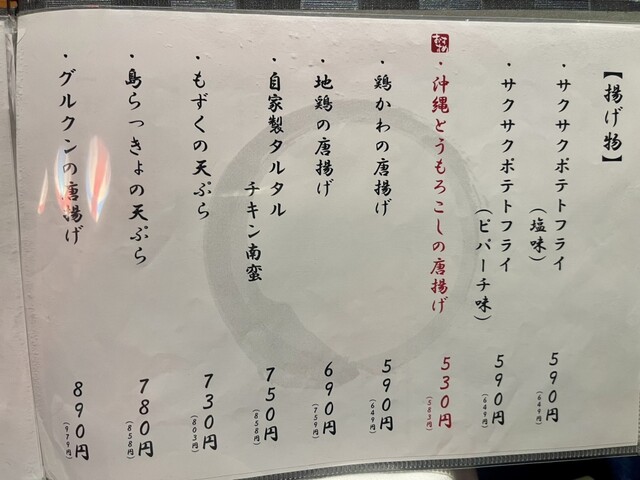 【揚げ物】
・サクサクポテトフライ
（塩味）
590円
（649円）
・サクサクポテトフライ
（ピパーチ味）
590円
（649円）
・沖縄とうもろこしの唐揚げ
530円
（583円）
・鶏かわの唐揚げ
590円
（649円）
・地鶏の唐揚げ
690円
（759円）
・自家製タルタル
チキン南蛮
750円
（858円）
・もずくの天ぷら
730円
（803円）
・島らっきょの天ぷら
780円
（858円）
・グルクンの唐揚げ
890円
（979円）